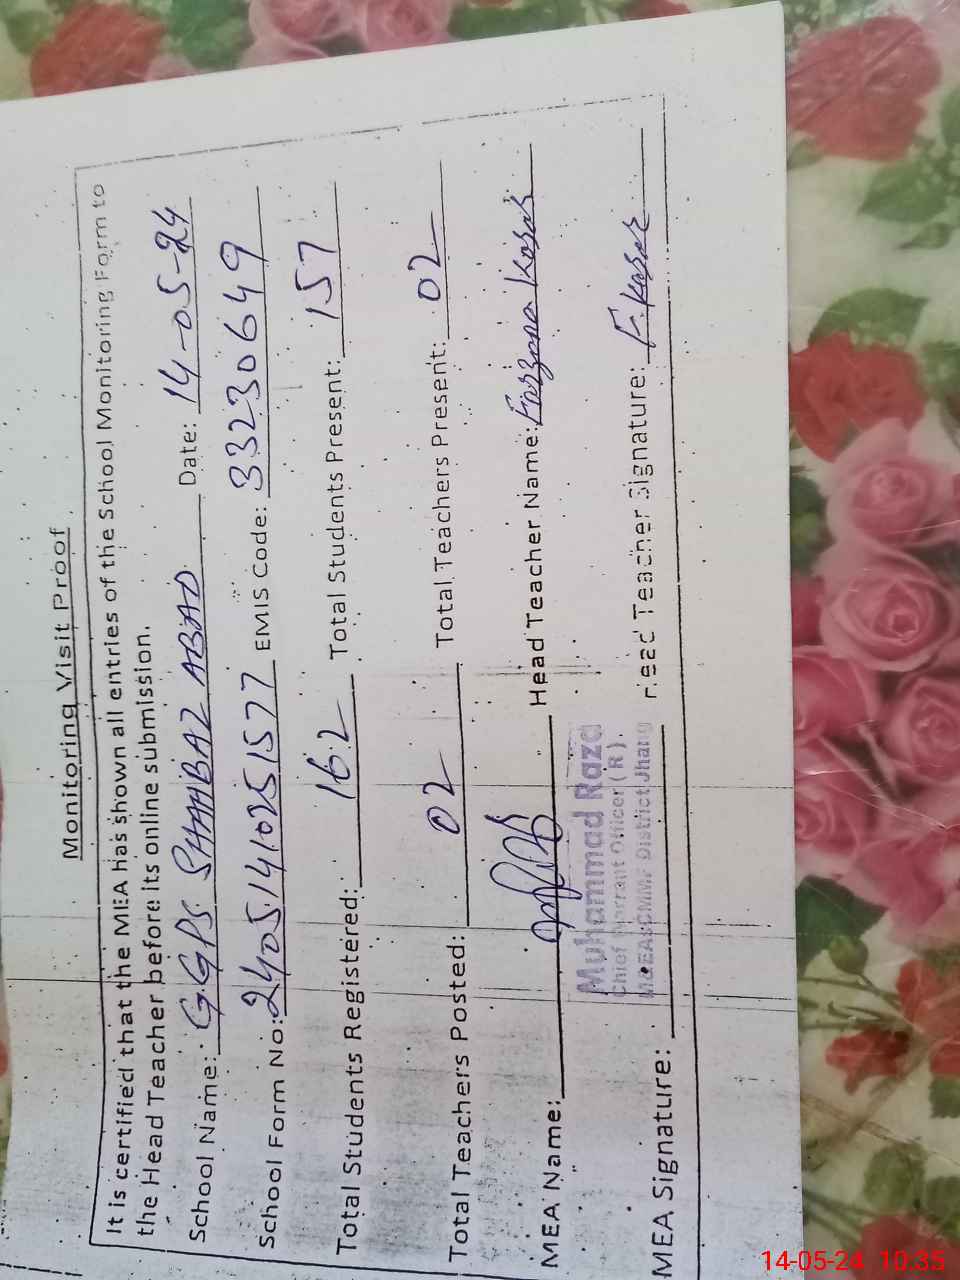 Monitoring Visit Proof
It is certified that the MEA has shown all entries of the School Monitoring Form to
the Head Teacher before its online submission.
School Name: GGPS SHAHBAZ ABAD Date: 14-05-24
School Form No: 24051410251577 EMIS Code: 33230649
Total Students Registered: 162 Total Students Present: 157
Total Teachers Posted: 02 Total Teachers Present: 02
MEA Name: Head Teacher Name: Farzana Kosar
Muhammad Raza
Chief Warrant Officer (R)
MEA Signature: Head Teacher Signature: F. Kosar
District Jhang
14-05-24 10:35